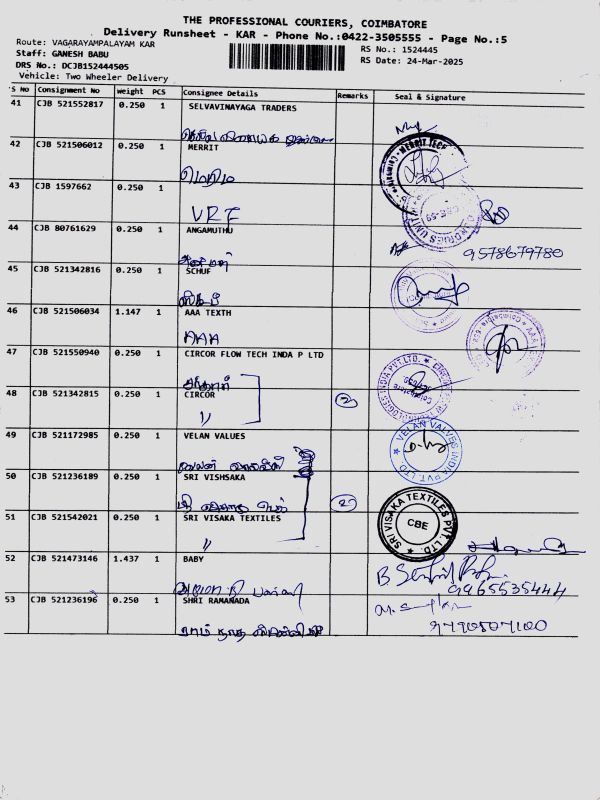 THE PROFESSIONAL COURIERS, COIMBATORE
Delivery Runsheet - KAR - Phone No.:0422-3505555 - Page No.:5
Route: VAGARAYAMPALAYAM KAR
RS No.: 1524445
Staff: GANESH BABU
RS Date: 24-Mar-2025
DRS No.: DCJB152444505
Vehicle: Two Wheeler Delivery
S No Consignment No Weight PCS Consignee Details Remarks Seal & Signature
41 CJB 521552817 0.250 1 SELVAVINAYAGA TRADERS
42 CJB 521506012 0.250 1 MERRIT
மெரிட்
43 CJB 1597662 0.250 1
VRF
44 CJB 80761629 0.250 1 ANGAMUTHU
9578679780
45 CJB 521342816 0.250 1 SCHUF
46 CJB 521506034 1.147 1 AAA TEXTH
AAA
47 CJB 521550940 0.250 1 CIRCOR FLOW TECH INDA P LTD
48 CJB 521342815 0.250 1 CIRCOR 2
"
49 CJB 521172985 0.250 1 VELAN VALUES
VELAN VALVES INDIA PVT. LTD
50 CJB 521236189 0.250 1 SRI VISHSAKA 2
51 CJB 521542021 0.250 1 SRI VISAKA TEXTILES
"
SRI VISAKA TEXTILES PVT. LTD.
CBE
52 CJB 521473146 1.437 1 BABY
9965535444
53 CJB 521236196 0.250 1 SHRI RAMANADA
9790507100